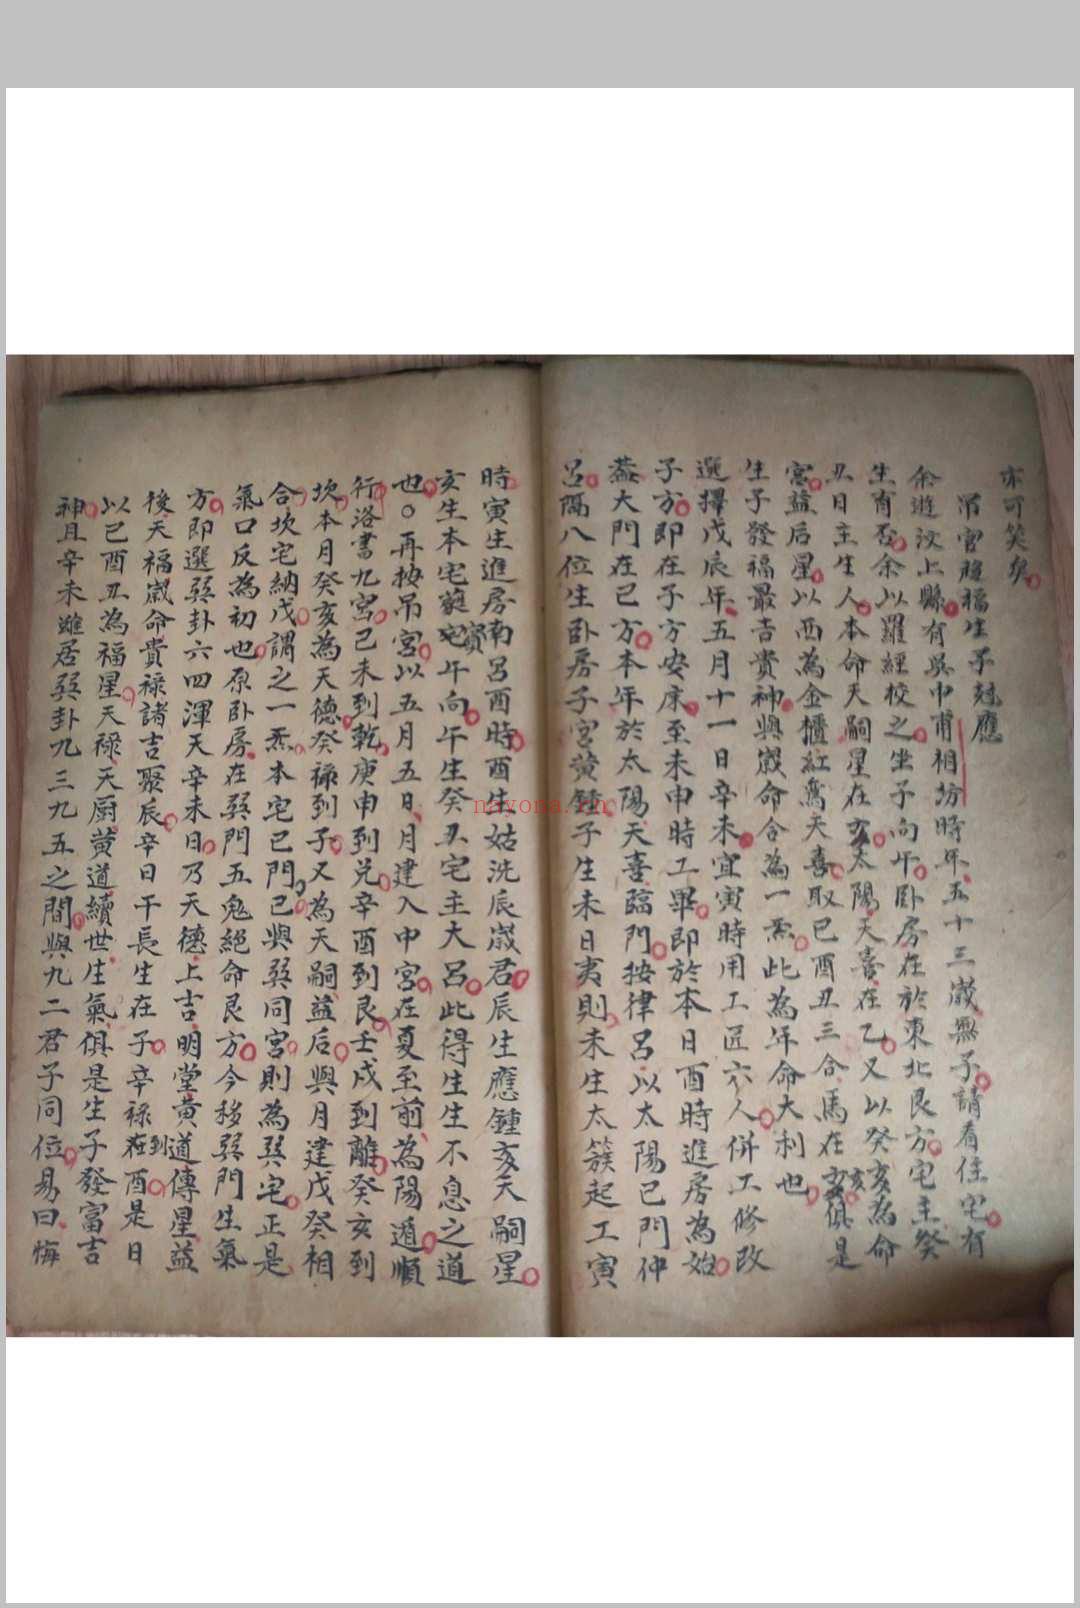 亦可笑矣
吊宮發福生子尅應
余遊汶上縣有吳中甫相訪時年五十三歲無子請看住宅有
生育否余以羅經校之坐子向午卧房在於東北艮方宅主癸
丑日主生人本命天嗣星在亥太陽天喜在乙又以癸亥為命
宮益后星以西為金櫃紅鸞天喜取巳酉丑三合馬在亥俱是
生子發福最吉貴神與歲命合為一炁此為年命大利也
選擇戊辰年五月十一日辛未宜寅時用工匠六人併工修改
子方即在子方安床至未申時工畢即於本日酉時進房為始
蓋大門在巳方本年於太陽天喜臨門按律呂以太陽巳門仲
呂隔八位生卧房子宮黄鍾子生未日夷則未生太簇起工寅
時寅生進房南呂酉時酉生姑洗辰歲君辰生應鍾亥天嗣星
亥生本宅蕤宾午向午生癸丑宅主大呂此得生生不息之道
也○再按吊宮以五月五日月建入中宮在夏至前為陽遁順
行洛書九宮己未到乾庚申到兑辛酉到艮壬戌到離癸亥到
坎本月癸亥為天德癸祿到子又為天嗣益后與月建戊癸相
合坎宅納戊謂之一炁本宅巳門巳與巽同宮則為巽宅正是
氣口反為初也原卧房在巽門五鬼絕命艮方今移巽門生氣
方即選巽卦六四渾天辛未日乃天德上吉明堂黄道傳星益
後天福歲命貴祿諸吉聚辰辛日干長生在子辛祿到酉是日
以巳酉丑為福星天祿天厨黄道續世生氣俱是生子發富吉
神且辛未雖居巽卦九三九五之間與九二君子同位易曰悔
nayona.cn